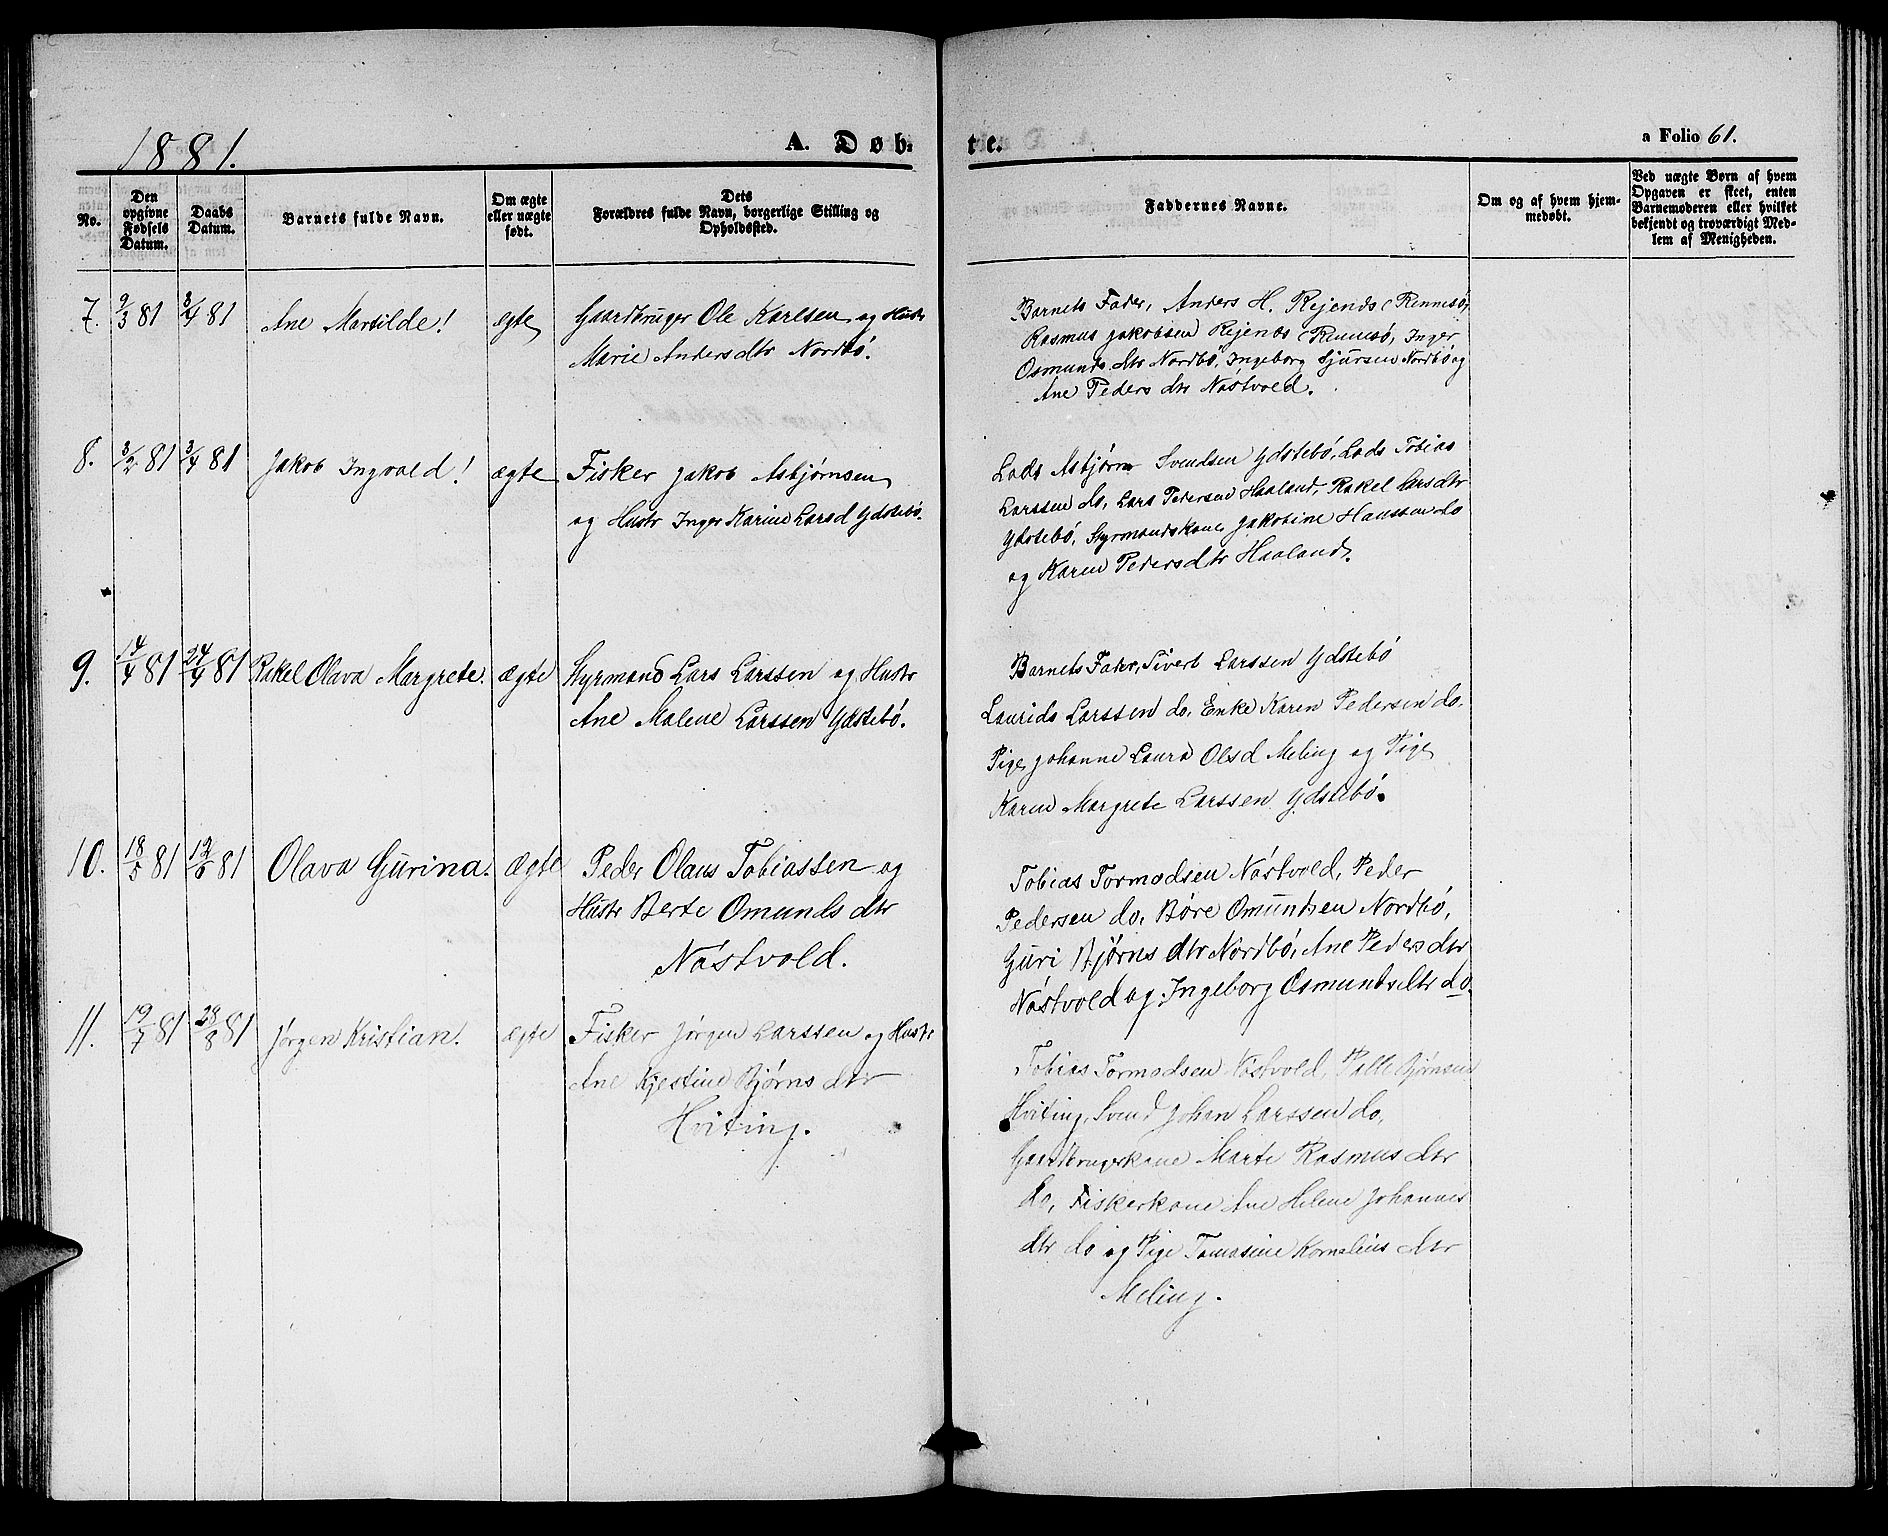 1881.
A. Døb-
te.
a Folio 61.
No.
Den opgivne Fødsels Datum.
Daabs Datum.
Barnets fulde Navn.
Om ægte eller uægte født.
Dets Forældres fulde Navn, borgerlige Stilling og Opholdssted.
Faddernes Navne.
Om og af hvem hjemmedøbt.
Ved uægte Børn af hvem Opgaven er skeet, enten Barnemoderen eller hvilket bekjendt og troværdigt Medlem af Menigheden.
7. 9/3 81 3/4 81 Ane Martilde! ægte
Gaardbruger Ole Karlsen og Hustr
Marie Andersdtr Nordbó.
Barnets Fader, Anders H. Rejends (Rennesø,
Rasmus Jakobsen Rejends (Rennesø, Inger
Osmunds dtr Nordbó, Ingeborg Sjursen Nordbó og
Ane Peders dtr Nóstvold.
8. 3/2 81 3/4 81 Jakob Ingvald! ægte
Fisker Jakob Asbjørnsen
og Hustr Inger Karine Larsd Ydstebó.
Lods Asbjørn Svendsen Ydstebó, Lods Tobias
Larssen do, Lars Pedersen Haaland, Rakel Larsdtr
Ydstebó, Styrmandskone Jakobine Hanssen do
og Karen Pedersdtr Haaland.
9. 14/4 81 24/4 81 Rakel Olava Margrete. ægte
Styrmand Lars Larssen og Hustr
Ane Malene Larssen Ydstebó.
Barnets Fader, Sivert Larssen Ydstebó
Laurids Larssen do, Enke Karen Pedersen do.
Pige Johanne Laura Olsd Meling og Pige
Karen Margrete Larssen Ydstebó.
10. 18/5 81 12/6 81 Olava Gurina. Ægte
Peder Olaus Tobiassen og
Hustr Berte Omunds dtr
Nóstvold.
Tobias Tormodsen Nóstvold, Peder
Pedersen do, Børe Omundsen Nordbó,
Guri Bjørns dtr Nordbó, Ane Peders dtr
Nóstvold og Ingeborg Osmundsdtr do.
11. 19/7 81 28/8 81 Jørgen Kristian. ægte
Fisker Jørgen Larssen og Hustr
Ane Kjestine Bjørns dtr
Hviting.
Tobias Tormodsen Nóstvold, Palle Bjørnsen
Hviting, Svend Johan Larssen do,
Gaardbrugerkone Marte Rasmus dtr
do, Fiskerkone Ane Helene Johannes
dtr do og Pige Tomasine Kornelius dtr
Meling.